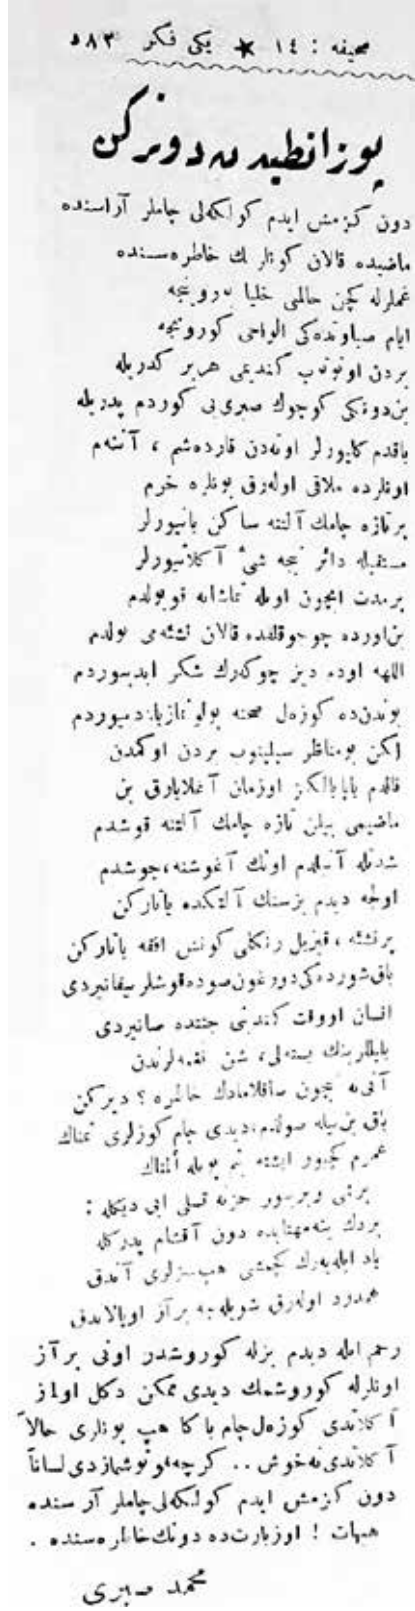 صحيفه : ١٤ ★ يكى فكر ٥٨٣
پوزانطيدن دونركن
دون كزمش ايدم كولكه‌لى چاملر آراسنده
ماضيده قالان كونلرك خاطره‌سنده
غملرله كچن حالمى خليا بوروينجه
ايام صباوتده‌كى الواحى كورونجه
بردن اونوتوب كنديمى هربر كدريله
بن‌دونكى كوچوك صبرى‌يى كوردم پدريله
باقدم كليورلر اوته‌دن قارده‌شم ، آننه‌م
اونلرده ملاقى اوله‌رق بونلره خرم
برتازه چامك آلتنه ساكن يانيورلر
مستقبله دائر نيجه شئ آكلاتيورلر
برمدت ايچون اويله تماشايه قويولدم
بن‌اورده چوجوقلقده قالان نشئه‌مى بولدم
اللهه اوده ديز چوكه‌رك شكر ايديوردم
بوندن‌ده كوزه‌ل صحنه بولونماز يا ديیوردم
لكن بومناظر سيلينوب بردن اوكمدن
قالدم يابايالكز اوزمان آغلايارق بن
ماضيمى بيلن تازه چامك آلتنه قوشدم
شدتله آتيلدم اونك آغوشنه، جوشدم
اولجه ديدم بزسنك آلتكده ياتاركن
پرنشئه ، قيزيل رنكلى كونش افقه باتاركن
باق‌شورده‌كى دورغون‌صوده‌قوشلر ييقانيردى
انسان اووقت كندينى جنتده صانيردى
بلبللرينك بسته‌لى، شن نغمه‌لرندن
آنى نه ايچون ساقلامادك خاطره ؟ ديركن
باق بن‌بيله صولدم، ديدى چام كوزلرى نمناك
عمرم كچيور ايشته بنم بويله ألمناك
ياد ايله‌يه‌رك كچمشى هپ‌سزلرى آندق
همدرد اوله‌رق شويله‌جه برآز اويالاندق
رحم ايله ديدم بزله كوروشدر اونى برآز
اونلرله كوروشمك ديدى ممكن دكل اولماز
آكلاتدى كوزه‌ل‌چام باكا هپ بونلرى حالاً
آكلاتدى‌نه‌خوش .. كرچه‌قونوشمازدى‌لساناً
دون كزمش ايدم كولكه‌لى‌چاملر آراسنده
هيهات ! اوزيارت‌ده دونك‌خاطره‌سنده .
محمد صبرى